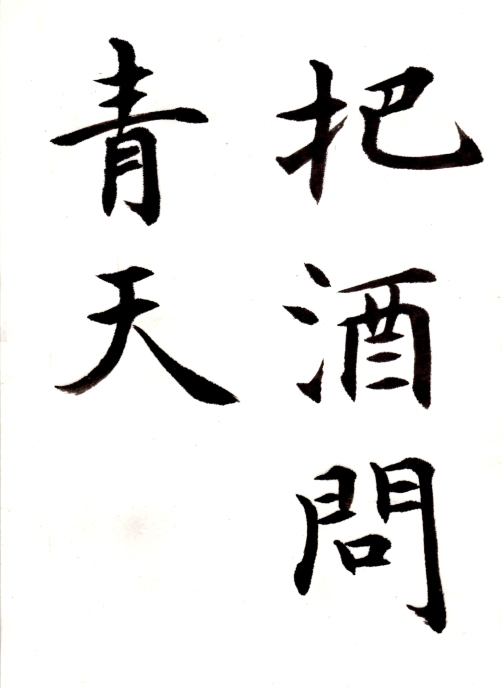 把酒問
青天